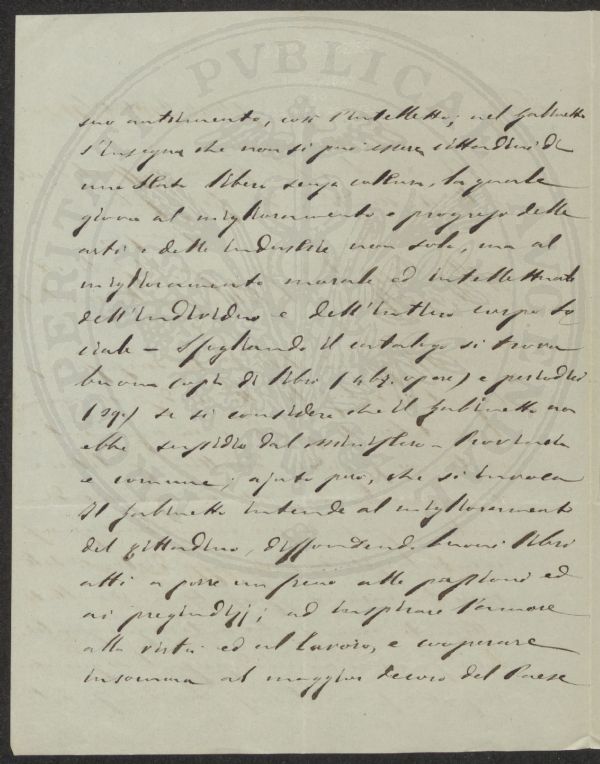 suo nutrimento, così l'intelletto; nel Gabinetto
s'insegna che non si può essere cittadini di
uno Stato libero senza cultura, la quale
giova al miglioramento e progresso delle
arti e delle industrie non solo, ma al
miglioramento morale ed intellettuale
dell'individuo e dell'intiero corpo so
ciale – Sfogliando il catalogo si trova
buona copia di libri (467. opere) e periodici
(29.) se si considera che il Gabinetto non
ebbe sussidio dal Ministero – Provincia
e comune; ajuto però, che si invoca
Il Gabinetto intende al miglioramento
del cittadino, diffondendo buoni libri
atti a porre un freno alle passioni ed
ai pregiudizj; ad inspirare l'amore
alla virtù ed al lavoro, e cooperare
insomma al maggior decoro del Paese
PVBLICA